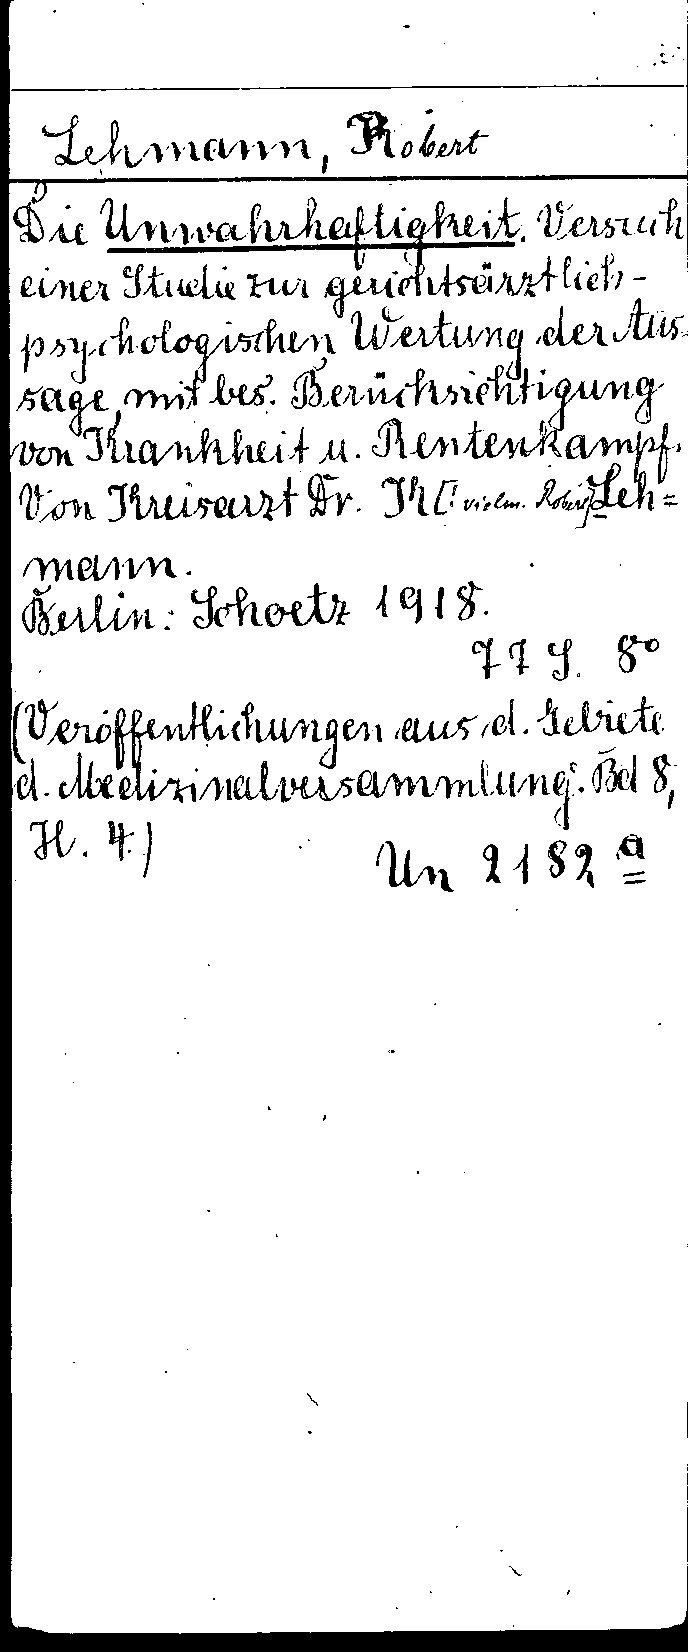 Lehmann, Robert
Die Unwahrhaftigkeit. Versuch
einer Studie zur gerichtsärztlich-
psychologischen Wertung der Aus-
sage, mit bes. Berücksichtigung
von Krankheit u. Rentenkampf.
Von Kreisarzt Dr. K [! vielm. Robert] Leh=
mann.
Berlin: Schoetz 1918.
77 S. 8°
(Veröffentlichungen aus d. Gebiete
d. Medizinalversammlung. Bd 8,
H. 4.)
Un 2182 a